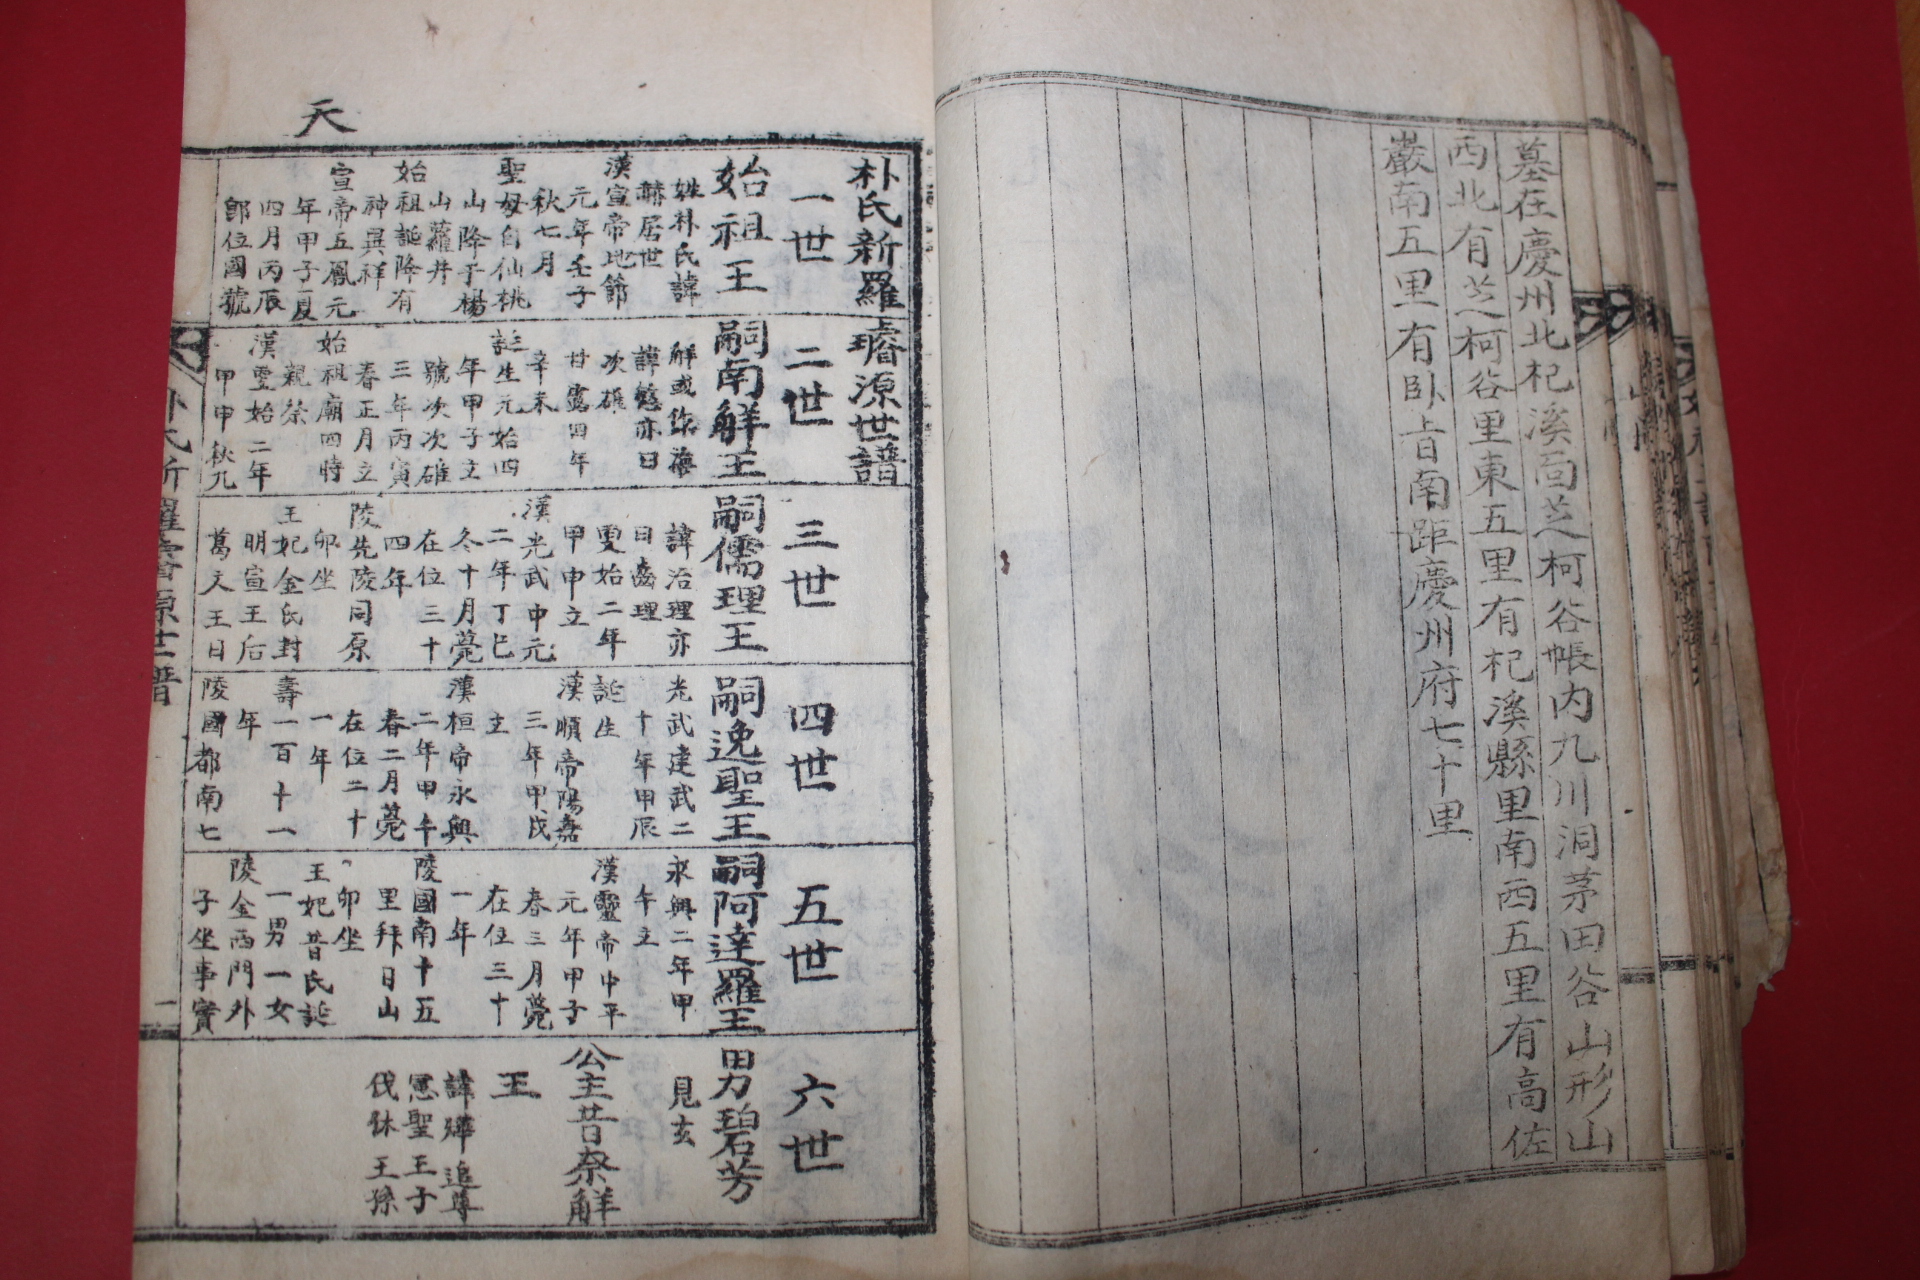 墓在慶州北杞溪面芝柯谷帳内九川洞茅田谷山形山
西北有芝柯谷里東五里有杞溪縣里南西五里有高佐
巖南五里有臥旨南距慶州府七十里
天
朴氏新羅璿源世譜
一世
始祖王
姓朴氏諱
赫居世
漢宣帝地節
元年壬子
秋七月
聖母自仙桃
山降于楊
山蘿井
始祖誕降有
神異祥
宣帝五鳳元
年甲子夏
四月丙辰
卽位國號
二世
嗣南解王
解或作
諱慈亦曰
次雄
甘露四年
辛未
誕生元始四
年甲子立
號次次雄
三年丙寅
春正月立
始祖廟四時
親祭
漢更始二年
甲申秋九
三世
嗣儒理王
諱治理亦
曰齒理
更始二年
甲申立
漢光武中元
二年丁巳
冬十月薨
在位三十
四年
陵先陵同原
卯坐
王妃金氏封
明宣王后
葛文王日
四世
嗣逸聖王
光武建武二
十年甲辰
誕生
漢順帝陽嘉
三年甲戌
立
漢桓帝永興
二年甲午
春二月薨
在位二十
一年
壽一百十一
年
陵國都南七
五世
嗣阿達羅王
永興二年甲
午立
漢靈帝中平
元年甲子
春三月薨
在位三十
一年
陵國南十五
里拜日山
卯坐
王妃昔氏誕
一男一女
陵金西門外
子坐事實
六世
男碧芳
見玄
公主昔奈解
王
諱 追尊
憲聖王子
伐休王孫
朴氏新羅璿源世譜
一